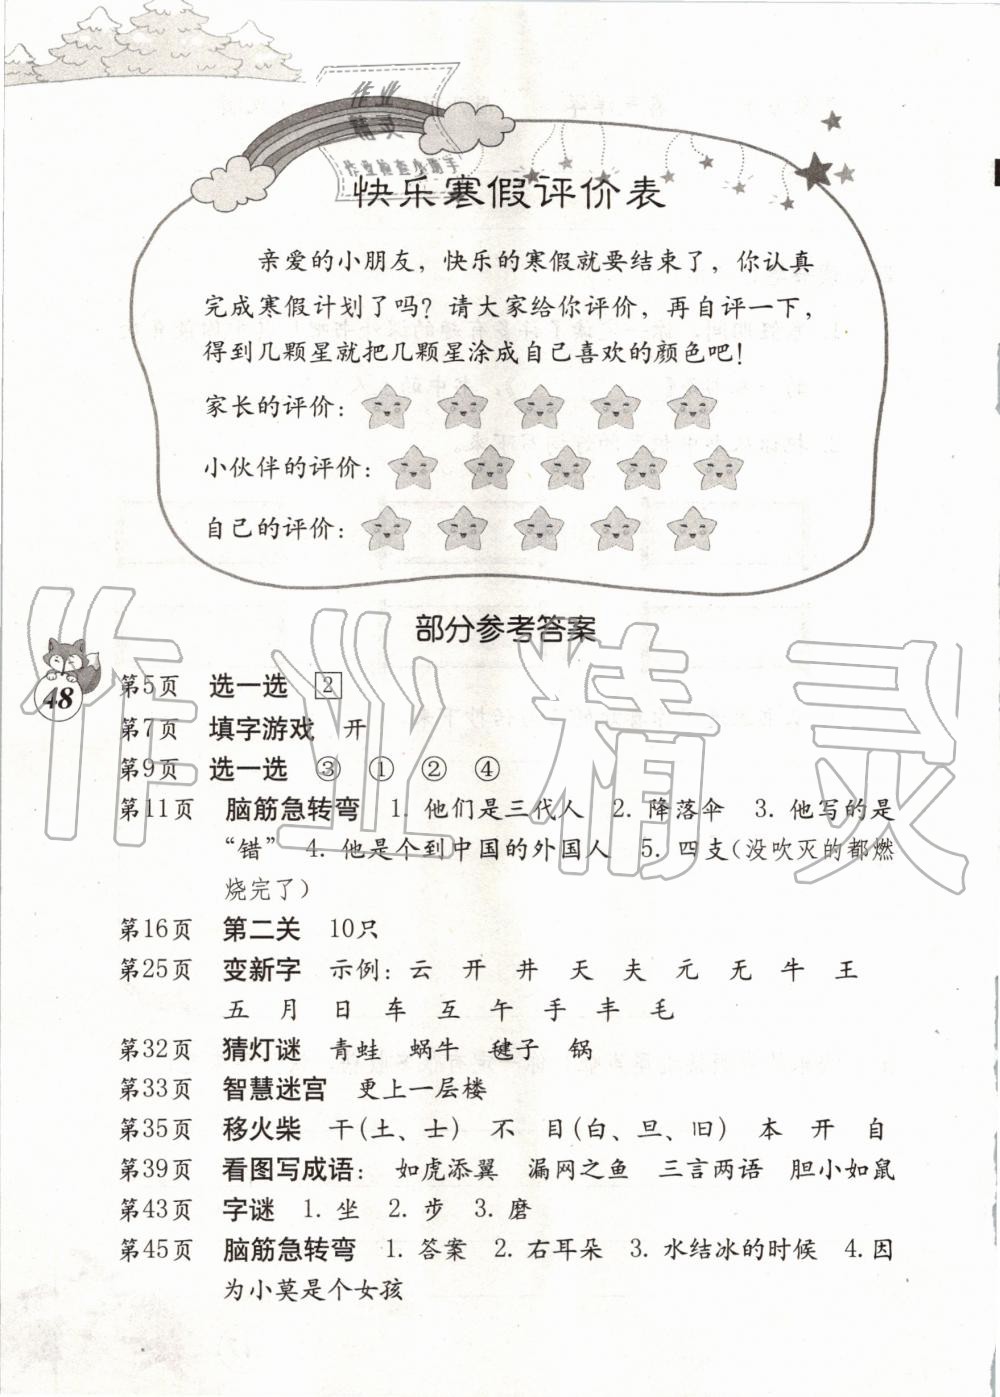 作业
精灵
作业检查小助手
快乐寒假评价表
亲爱的小朋友，快乐的寒假就要结束了，你认真
完成寒假计划了吗？请大家给你评价，再自评一下，
得到几颗星就把几颗星涂成自己喜欢的颜色吧！
家长的评价：
小伙伴的评价：
自己的评价：
作业精灵
部分参考答案
48
第5页 选一选 2
第7页 填字游戏 开
第9页 选一选 ③ ① ② ④
第11页 脑筋急转弯 1. 他们是三代人 2. 降落伞 3. 他写的是
“错” 4. 他是个到中国的外国人 5. 四支（没吹灭的都燃
烧完了）
第16页 第二关 10只
第25页 变新字 示例：云 开 井 天 夫 元 无 牛 王
五 月 日 车 互 午 手 丰 毛
第32页 猜灯谜 青蛙 蜗牛 毽子 锅
第33页 智慧迷宫 更上一层楼
第35页 移火柴 干（土、士） 不 目（白、旦、旧） 本 开 自
第39页 看图写成语：如虎添翼 漏网之鱼 三言两语 胆小如鼠
第43页 字谜 1. 坐 2. 步 3. 磨
第45页 脑筋急转弯 1. 答案 2. 右耳朵 3. 水结冰的时候 4. 因
为小莫是个女孩